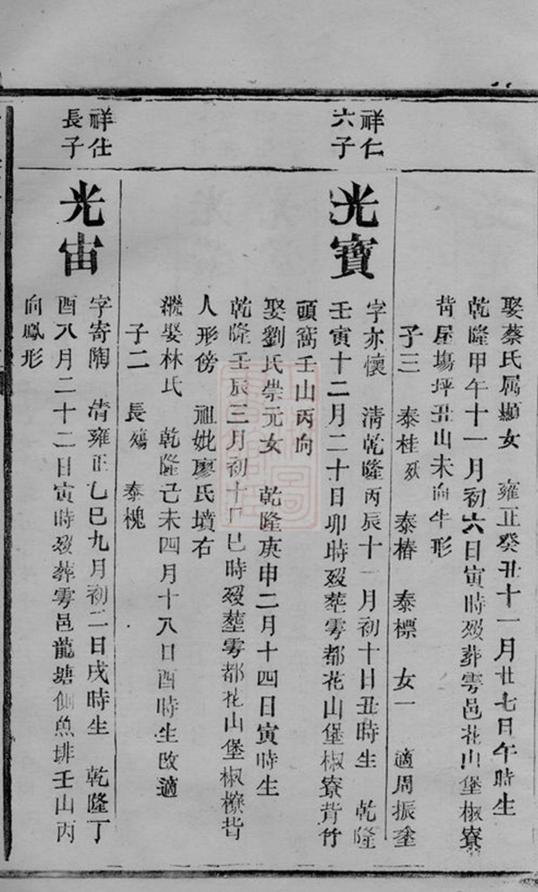 娶蔡氏属顯女 雍正癸丑十一月廿七日午時生
乾隆甲午十一月初六日寅時殁葬雩邑花山堡椒寮
背屋塲坪丑山未向牛形
子三 泰桂 殀 泰椿 泰標 女一 適周振塗
祥仁
六子
光寶
字亦懷 清乾隆丙辰十一月初十日丑時生 乾隆
壬寅十二月二十日卯時殁塟雩都花山堡椒寮背竹
頭窩壬山丙向
娶劉氏崇元女 乾隆庚申二月十四日寅時生
乾隆壬辰三月初十日巳時殁塟雩都花山堡椒橑背
人形傍 祖妣廖氏墳右
繼娶林氏 乾隆己未四月十八日酉時生改適
子二 長殤 泰槐
祥仕
長子
光宙
字寄陶 清雍正乙巳九月初二日戌時生 乾隆丁
酉八月二十二日寅時殁葬雩邑龍塘側魚排壬山丙
向鳳形